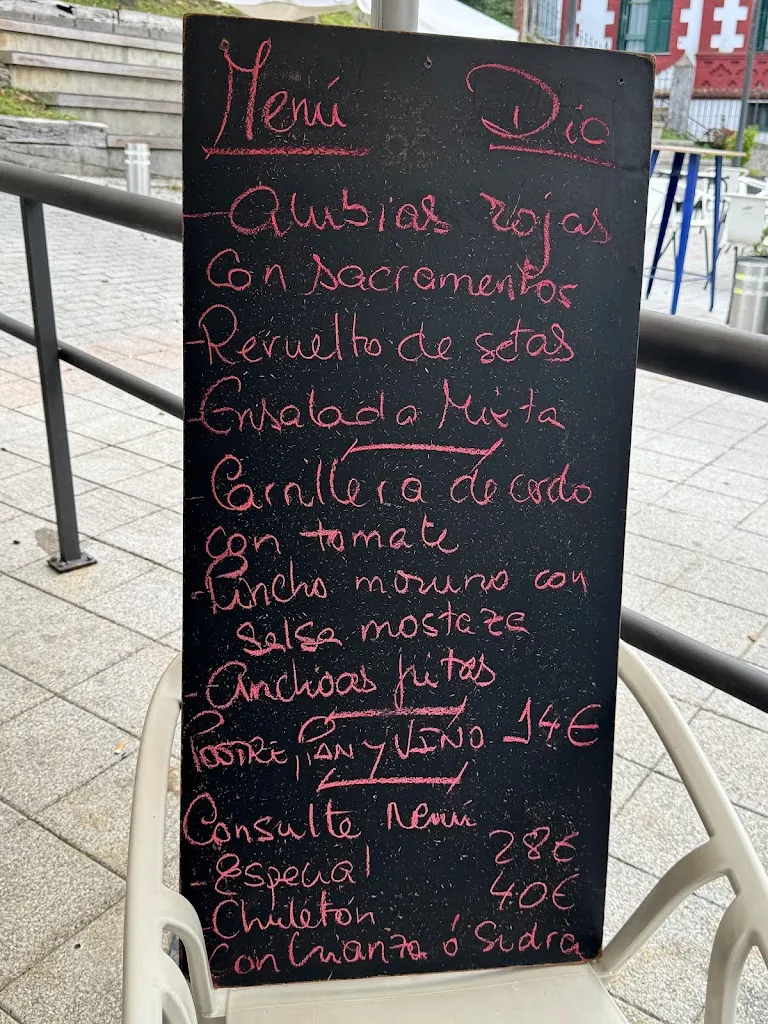 Menú Dia
- Alubias rojas
con sacramentos
- Revuelto de setas
- Ensalada Mixta
- Carrillera de cerdo
con tomate
- Pincho moruno con
salsa mostaza
- Anchoas fritas
Postre, Pan y Vino 14€
Consulte Menú
- Especial 28€
- Chuletón 40€
Con Crianza ó Sidra